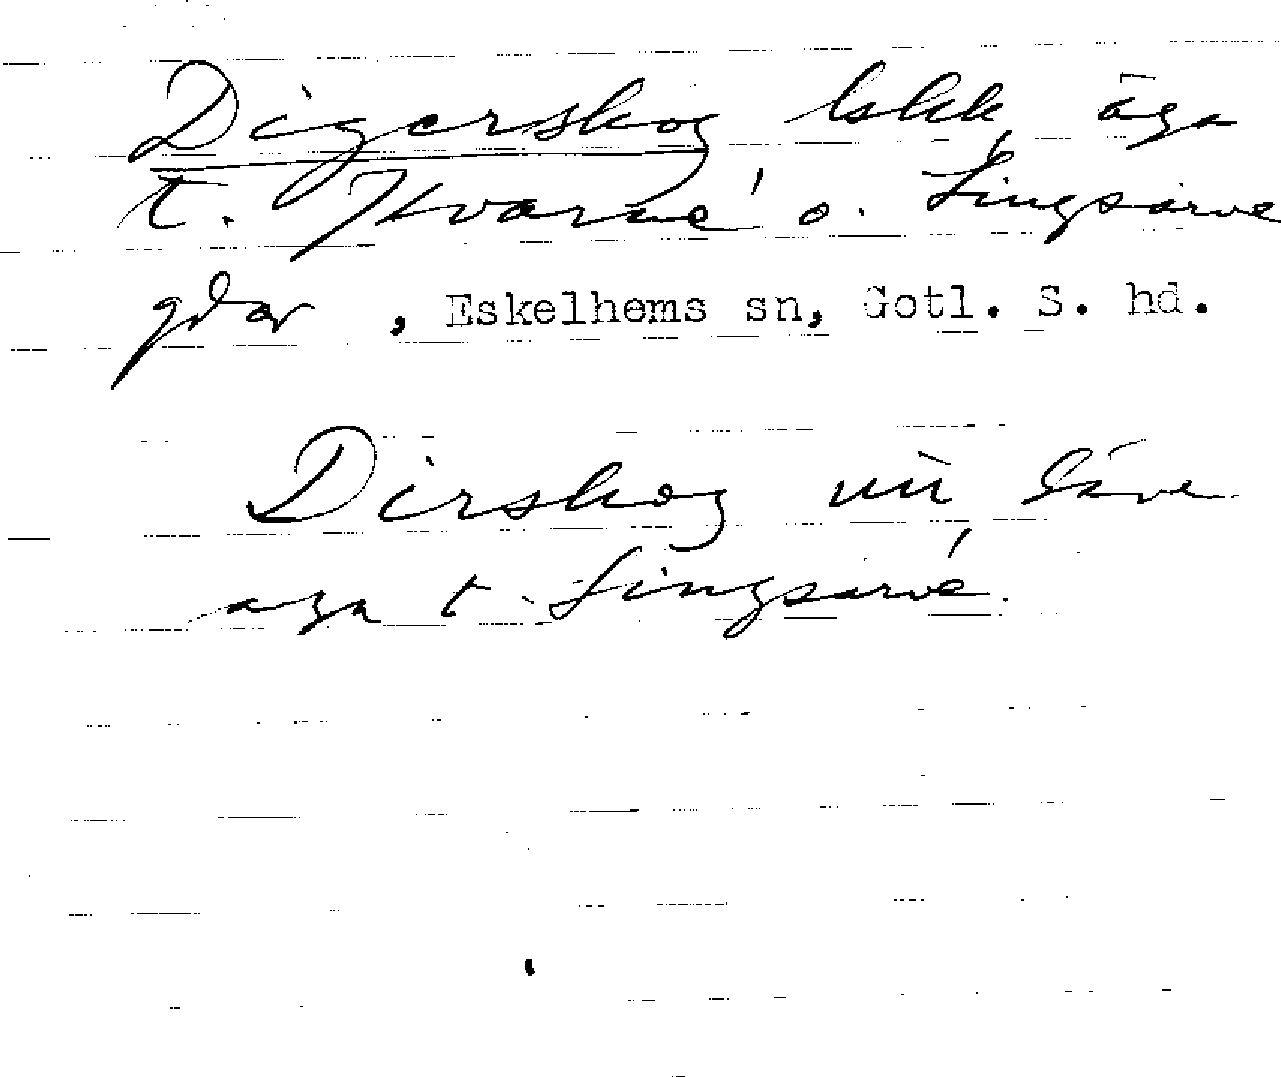 Digerskog lskk, äga
t. Kvarne o. Lingsarve
gdar , Eskelhems sn, Gotl. S. hd.
Dirskog
äga t. Lingsarve.